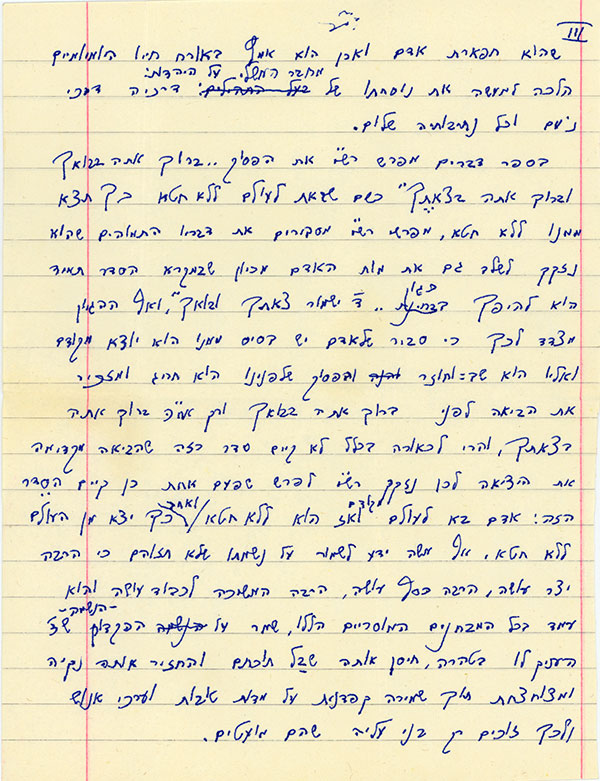 III
שהוא תפארת אדם ואכן הוא אסף באורח חייו היומיומיים
מחבר המשלי על היהדות:
הלכה למעשה את נוסחתו של בעל התהילים: דרכיה דרכי
נועם וכל נתיבותיה שלום.
בספר דברים מפרש רש"י את הפסוק ,,ברוך אתה בבואך
וברוך אתה בצאתך" כשם שבאת לעולם ללא חטא כך תצא
ממנו ללא חטא, מפרשי רש"י מסבירים את דבריו התמוהים שהוא
נזקק לשלב גם את מות האדם מכיון שבמקרא הסדר תמיד
כגון
הוא להיפך ,,ד' ישמור צאתך ובואך", ואף ההגיון
מצדד לכך כי סביר שלאדם יש בסיס ממנו הוא יוצא מקודם
ואליו הוא שב וחוזר ובפסוק שלפנינו הוא חריג ומזכיר
את הביאה לפני ברוך אתה בבואך ורק אח"כ ברוך אתה
בצאתך, והרי לכאורה בכלל לא קיים סדר כזה שהביאה מקדימה
את היציאה לכן נזקק רש"י לפרש שפעם אחת כן קיים הסדר
מקודם
הזה: אדם בא לעולם ואז הוא ללא חטא/כך יצא מן העולם
ללא חטא. אף משה ידע לשמור על נשמתו שלא תזוהם כי הרבה
יצר עושה, הרבה כסף עושה, הרבה המשיכה לכבוד עושה והוא
-הנשמה-
עמד בכל המבחנים המוסריים הללו, שמר על הנשמה הפקדון שד'
העניק לו בטהרה, חיסן אותה שבל תוכתם והחזיר אותה נקיה
ומצוחצחת תוך שמירה קפדנית על מדות טובות וערכי אנוש
ולכך זוכים רק בני עליה שהם מועטים.